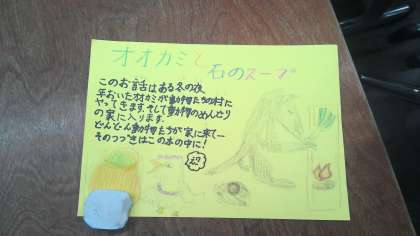 オオカミと
石のスープ
このお話はある冬の夜、
年おいたオオカミが動物たちの村に
やってきます。そして動物のめんどり
の家に入ります。
どんどん動物たちが家に来て…
そのつづきはこの本の中に!